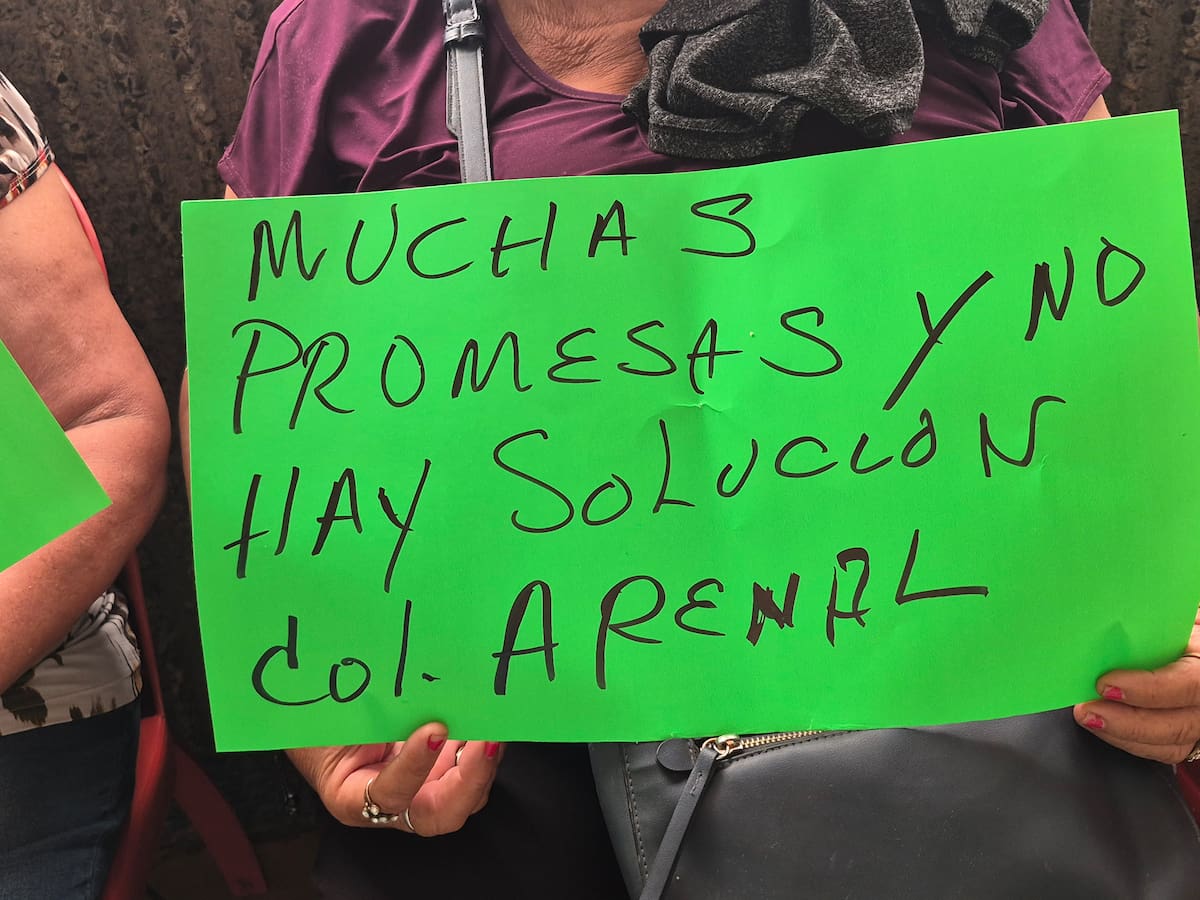 MUCHAS
PROMESAS Y NO
HAY SOLUCION
Col. ARENAL